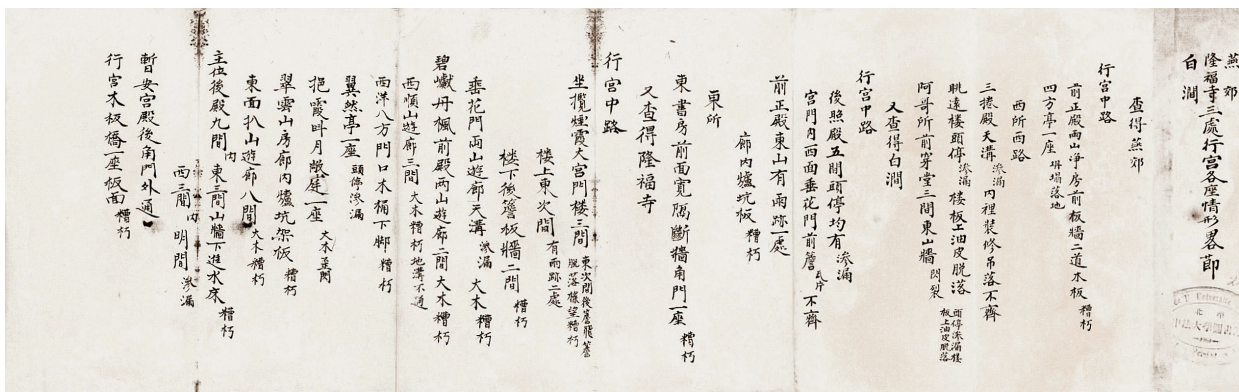 燕郊
隆福寺三處行宮各座情形畧節
白澗
查得燕郊
行宮中路
前正殿兩山淨房前板牆二道木板糟朽
四方亭一座坍塌落地
西所西路
三捲殿天溝滲漏內裡裝修吊落不齊
眺遠樓頭停滲漏樓板上油皮脫落
頭停滲漏樓板上油皮脫落
阿哥所前穿堂三間東山牆閃裂
又查得白澗
行宮中路
後照殿五間頭停均有滲漏
宮門內西面垂花門前簷瓦片不齊
前正殿東山有雨跡一處
廊內爐坑板糟朽
東所
東書房前面寬隔斷牆角門一座糟朽
又查得隆福寺
行宮中路
坐攬煙霞大宮門樓三間東次間後簷飛簷脫落樣望糟朽
樓上東次間有雨跡二處
楼下後簷板牆二間糟朽
垂花門兩山遊廊天溝滲漏大木糟朽
碧巘丹楓前殿兩山遊廊二間大木糟朽
西順山遊廊三間大木糟朽地溝不通
西洋八方門口木桶下腳糟朽
翼然亭一座頭停滲漏
挹霞畔月敞廳一座大木歪閃
翠雲山房廊內爐坑架板糟朽
東面扒山遊廊八間大木糟朽
主位後殿九間內東三間山牆下進水床糟朽
內西三間明間滲漏
暫安宮殿後角門外通
行宮木板橋一座板面糟朽